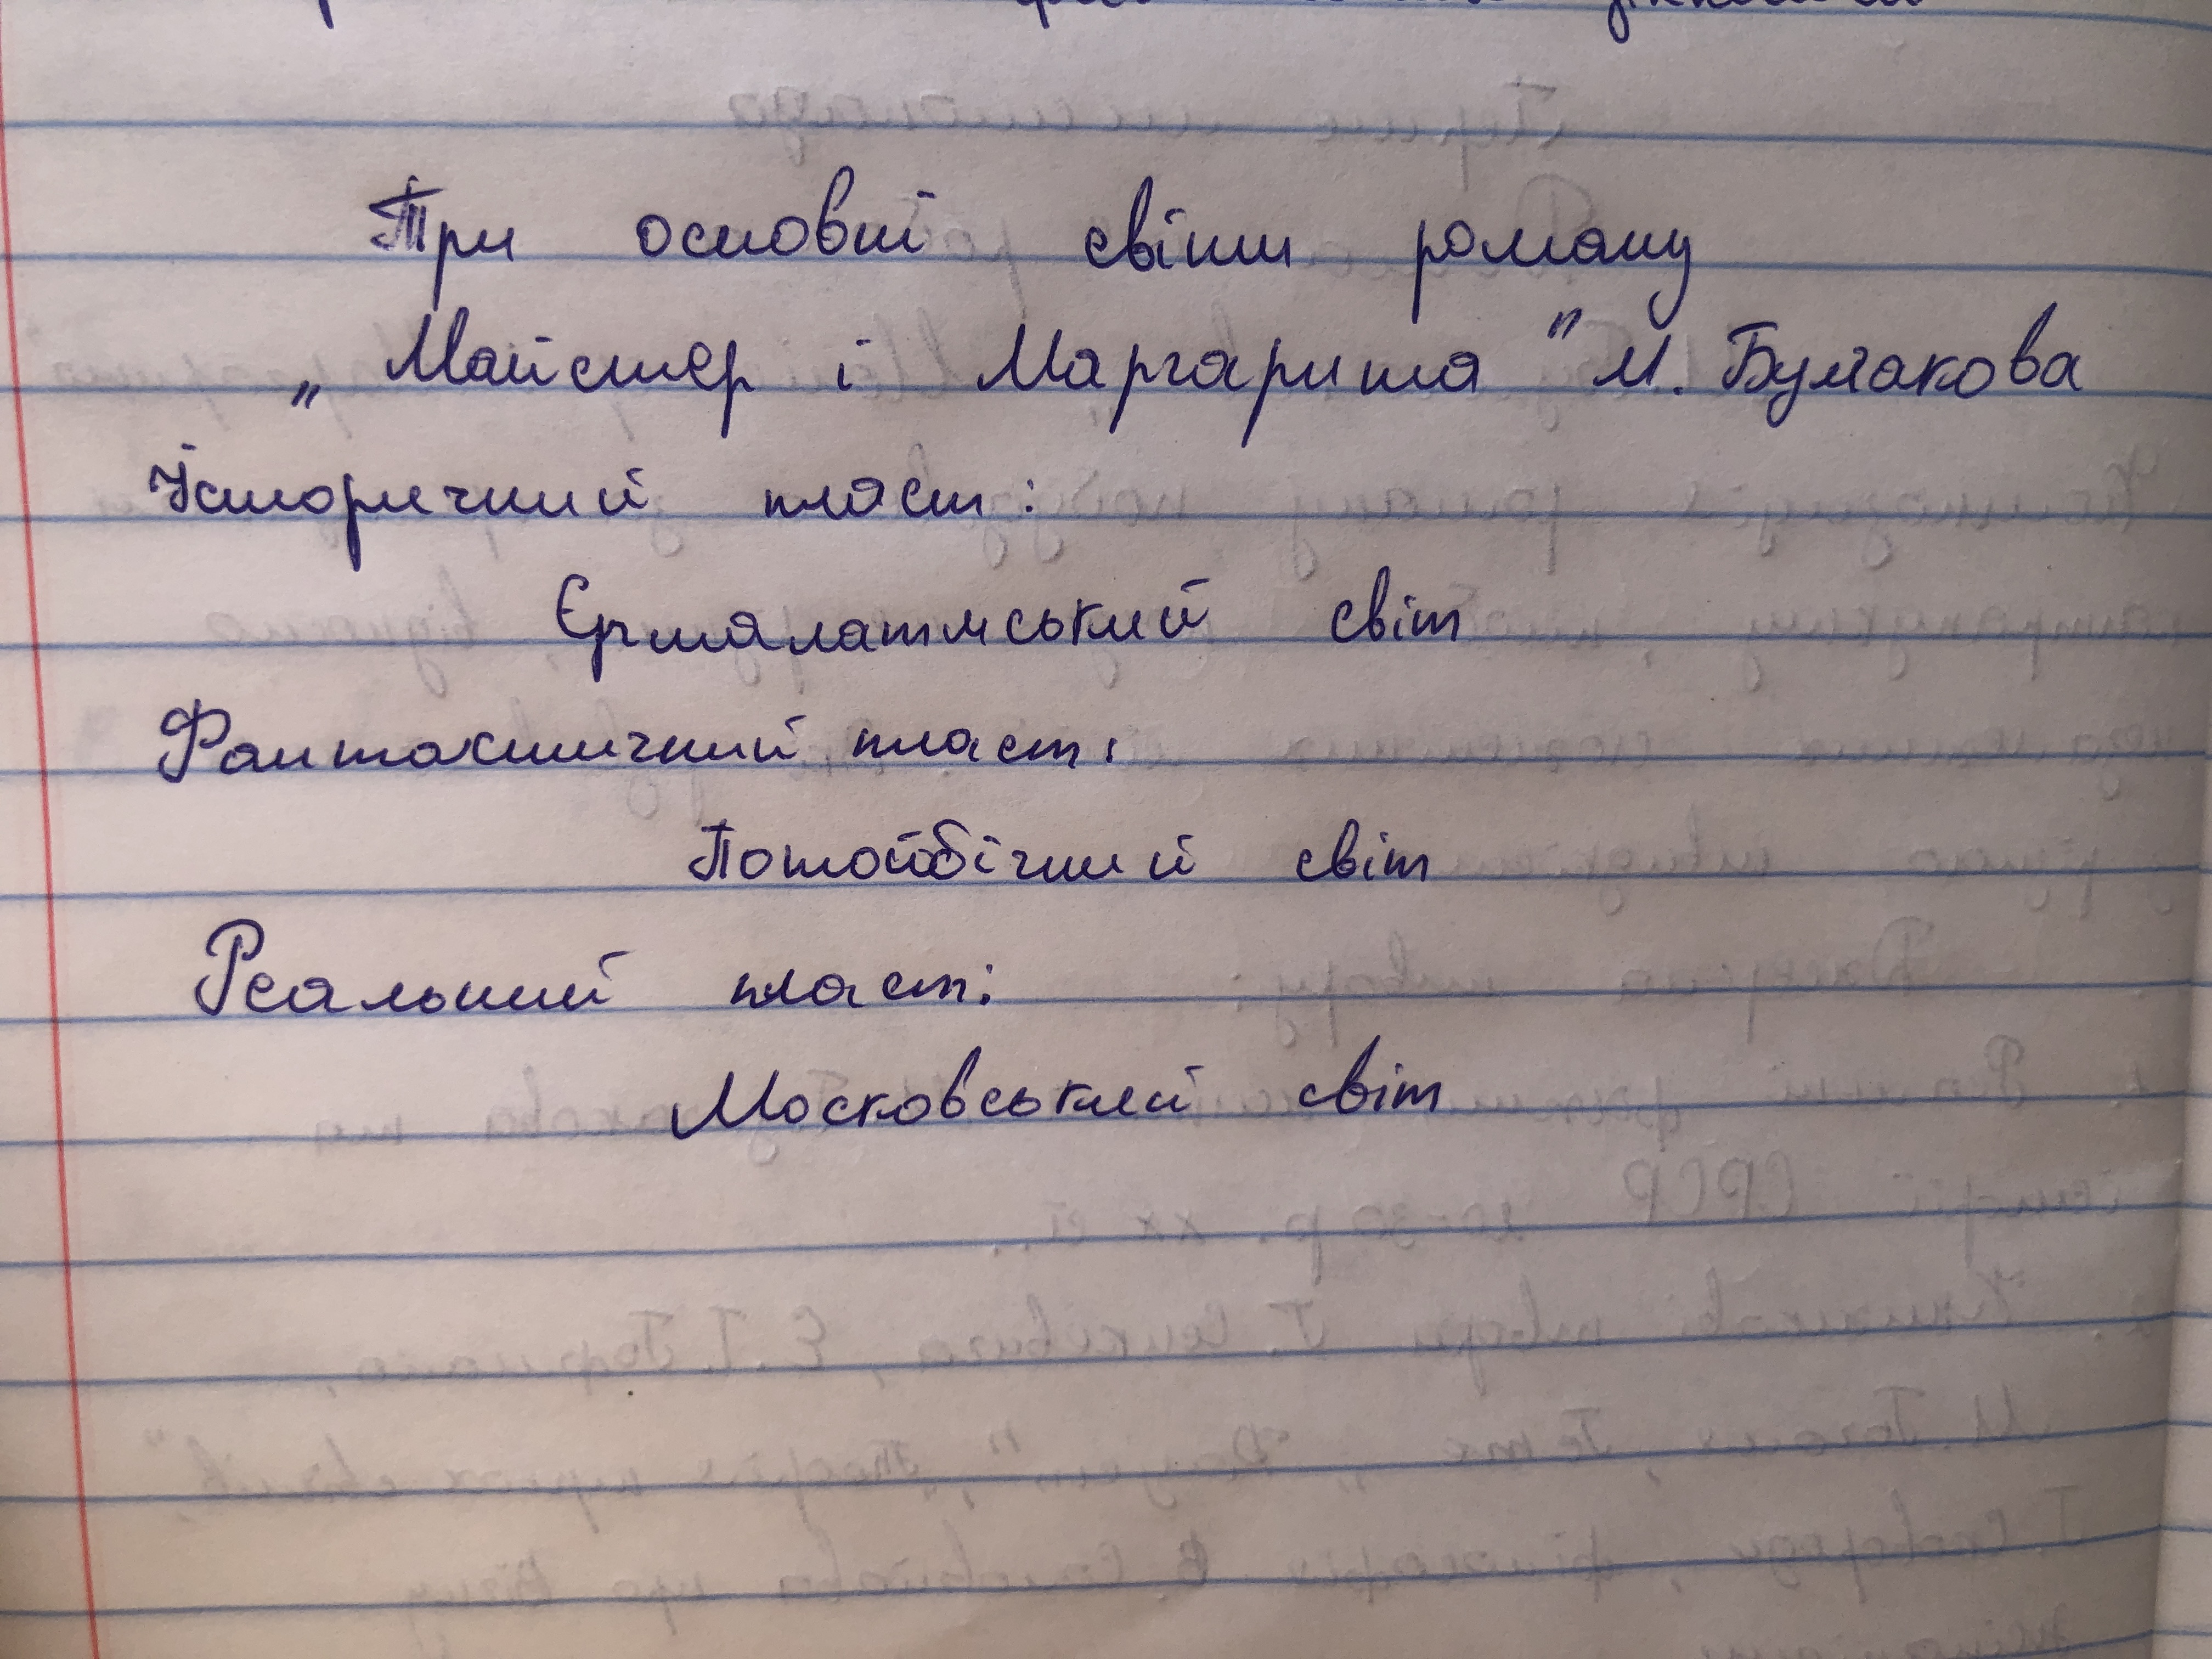 Три основні світи роману
„Майстер і Маргарита" М. Булгакова
Історичний пласт:
Єршалаїмський світ
Фантастичний пласт:
Потойбічний світ
Реальний пласт:
Московський світ